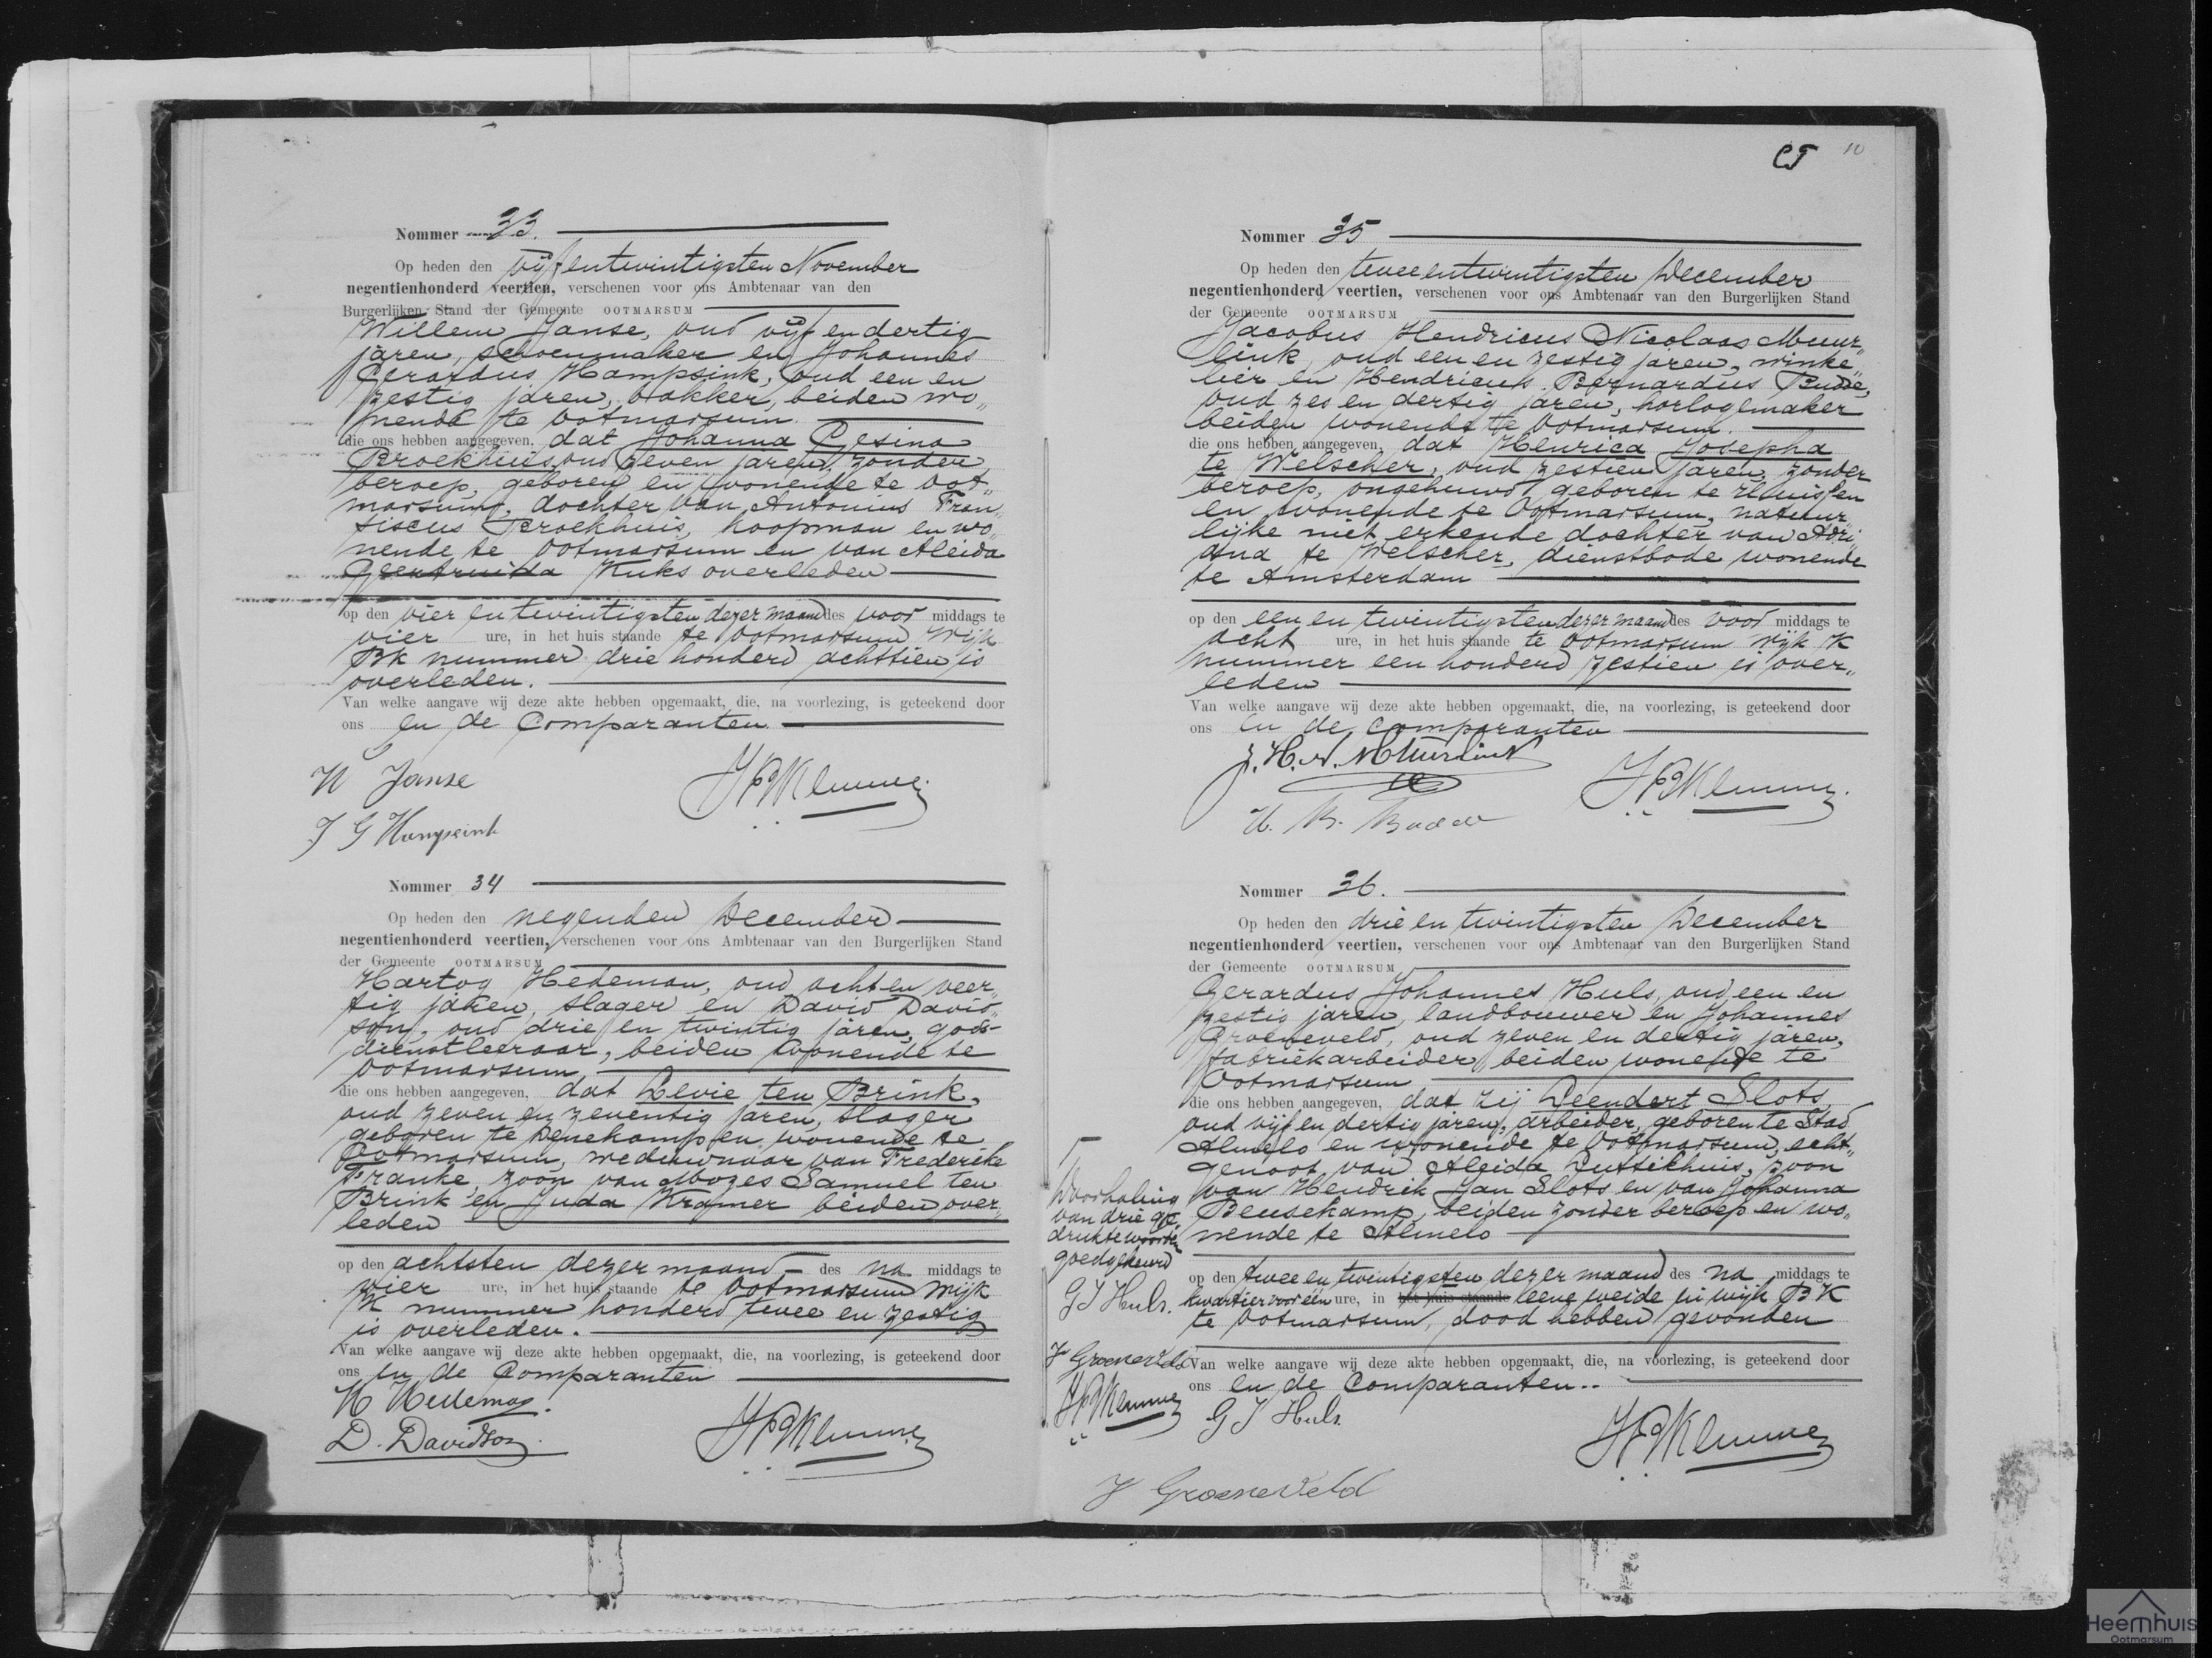 Nommer 33.
Op heden den vijfentwintigsten November
negentienhonderd veertien, verschenen voor ons Ambtenaar van den
Burgerlijken Stand der Gemeente OOTMARSUM
Willem Janse, oud vijf en dertig
jaren, schoenmaker en Johannes
Gerardus Hampsink, oud een en
zestig jaren, bakker, beiden wo„
nende te Ootmarsum
die ons hebben aangegeven, dat Johanna Gesina
Broekhuis, oud zeven jaren, zonder
beroep, geboren en wonende te Oot„
marsum, dochter van Antonius Fran„
siscus Broekhuis, koopman en wo„
nende te Ootmarsum en van Aleida
Geertruida Kuks overleden
op den vier en twintigsten dezer maand des voor middags te
vier ure, in het huis staande te Ootmarsum Wijk
BK nummer drie honderd achttien is
overleden.
Van welke aangave wij deze akte hebben opgemaakt, die, na voorlezing, is geteekend door
ons en de Comparanten
W Janse
J G Hampsink
Nommer 34
Op heden den negenden December
negentienhonderd veertien, verschenen voor ons Ambtenaar van den Burgerlijken Stand
der Gemeente OOTMARSUM
Hartog Hedeman, oud acht en veer„
tig jaren, slager en David David„
son, oud drie en twintig jaren, gods-
dienstleeraar, beiden wonende te
Ootmarsum,
die ons hebben aangegeven, dat Levie ten Brink,
oud zeven en zeventig jaren, slager
geboren te Denekamp en wonende te
Ootmarsum, weduwnaar van Frederike
Franke, zoon van Mozes Samuel ten
Brink en Juda Kramer beiden over„
leden
op den achtsten dezer maand des na middags te
vier ure, in het huis staande te Ootmarsum wijk
K nummer honderd twee en zestig
is overleden.
Van welke aangave wij deze akte hebben opgemaakt, die, na voorlezing, is geteekend door
ons en de Comparanten
H Hedeman.
D. Davidson
Nommer 35
Op heden den tweeentwintigsten December
negentienhonderd veertien, verschenen voor ons Ambtenaar van den Burgerlijken Stand
der Gemeente OOTMARSUM
Jacobus Hendricus Nicolaas Muur„
link, oud een en zestig jaren, winke„
lier en Hendricus Bernardus Budde,
oud zes en dertig jaren, horlogemaker
beiden wonende te Ootmarsum.
die ons hebben aangegeven, dat Henrica Josepha
te Welscher, oud zestien jaren, zonder
beroep, ongehuwd geboren te
en wonende te Ootmarsum, natuur„
lijke niet erkende dochter van Adri„
ana te Welscher, dienstbode wonende
te Amsterdam
op den een en twintigsten dezer maand des voor middags te
acht ure, in het huis staande te Ootmarsum wijk K
nummer een honderd zestien is over„
leden
Van welke aangave wij deze akte hebben opgemaakt, die, na voorlezing, is geteekend door
ons en de comparanten
J. H. N. Muurlink
H. B. Budde
Nommer 36.
Op heden den drie en twintigsten December
negentienhonderd veertien, verschenen voor ons Ambtenaar van den Burgerlijken Stand
der Gemeente OOTMARSUM
Gerardus Johannes Huls, oud een en
zestig jaren, landbouwer en Johannes
Groeneveld, oud zeven en dertig jaren,
fabriekarbeider beiden wonende te
Ootmarsum
die ons hebben aangegeven, dat zij Leendert Slots,
oud vijf en dertig jaren, arbeider, geboren te Stad
Almelo en wonende te Ootmarsum, echt„
genoot van Aleida Luttikhuis, zoon
van Hendrik Jan Slots en van Johanna
Beusekamp, beiden zonder beroep en wo„
nende te Almelo
op den twee en twintigsten dezer maand des na middags te
kwartier voor één ure, in het huis staande eene weide in wijk BK
te Ootmarsum, dood hebben gevonden
Van welke aangave wij deze akte hebben opgemaakt, die, na voorlezing, is geteekend door
ons en de Comparanten..
G J Huls
J Groeneveld
Doorhaling
van drie ge„
drukte woorden
goedgekeurd
G J Huls.
J Groeneveld
Heemhuis
Ootmarsum